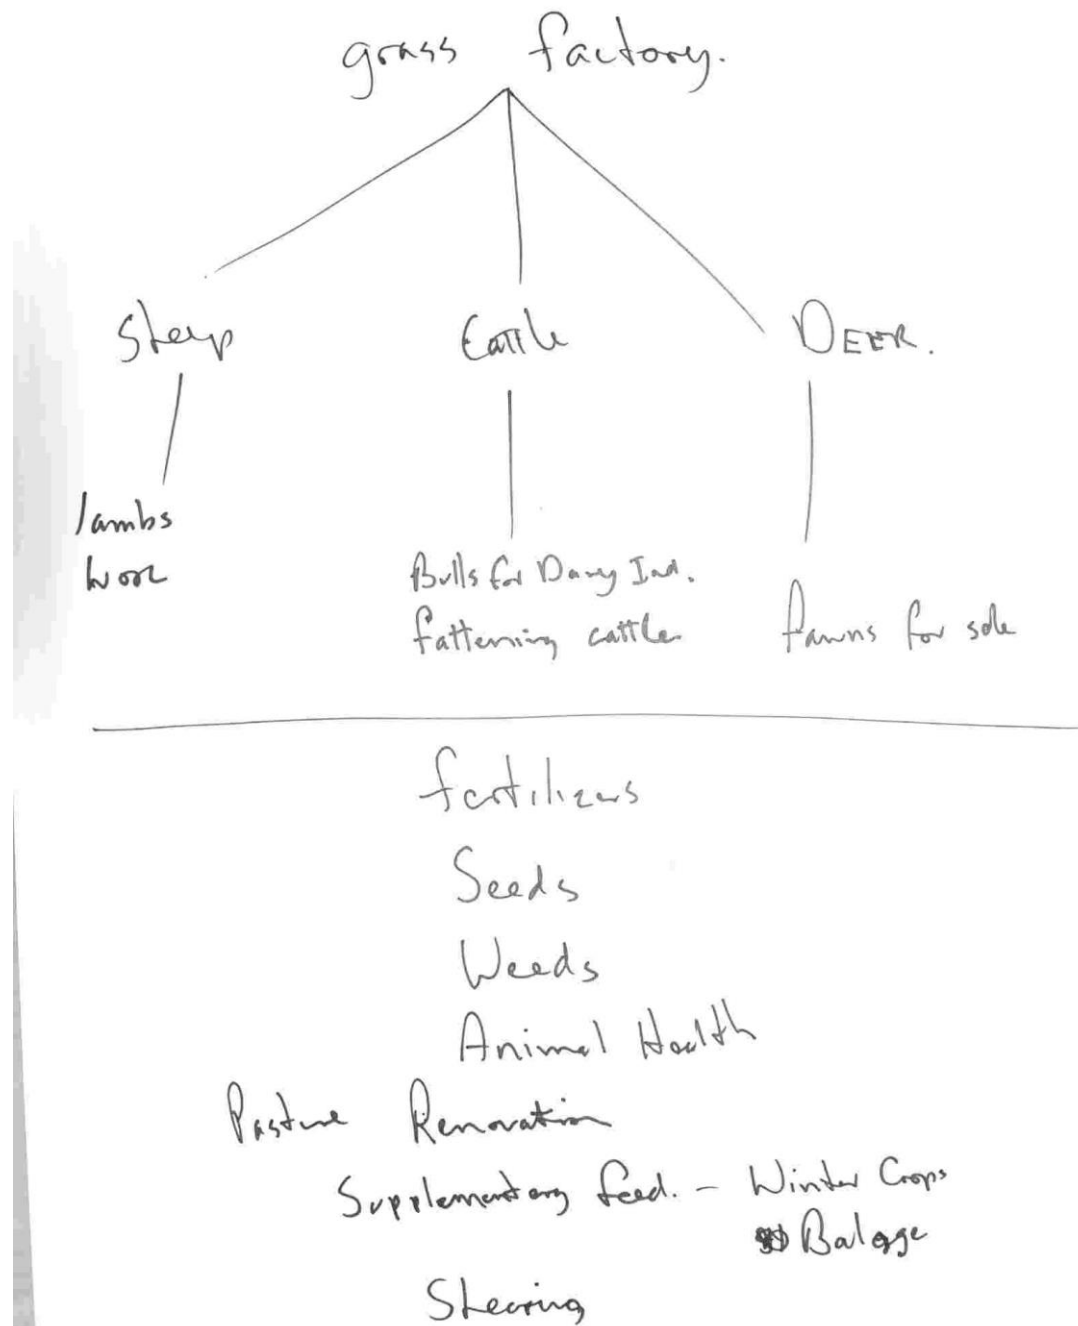 grass factory.
Sheep Cattle DEER.
lambs
wool
Bulls for Dairy Ind.
fattening cattle
fawns for sale
fertilizers
Seeds
Weeds
Animal Health
Pasture Renovation
Supplementary feed. - Winter Crops
Balage
Shearing